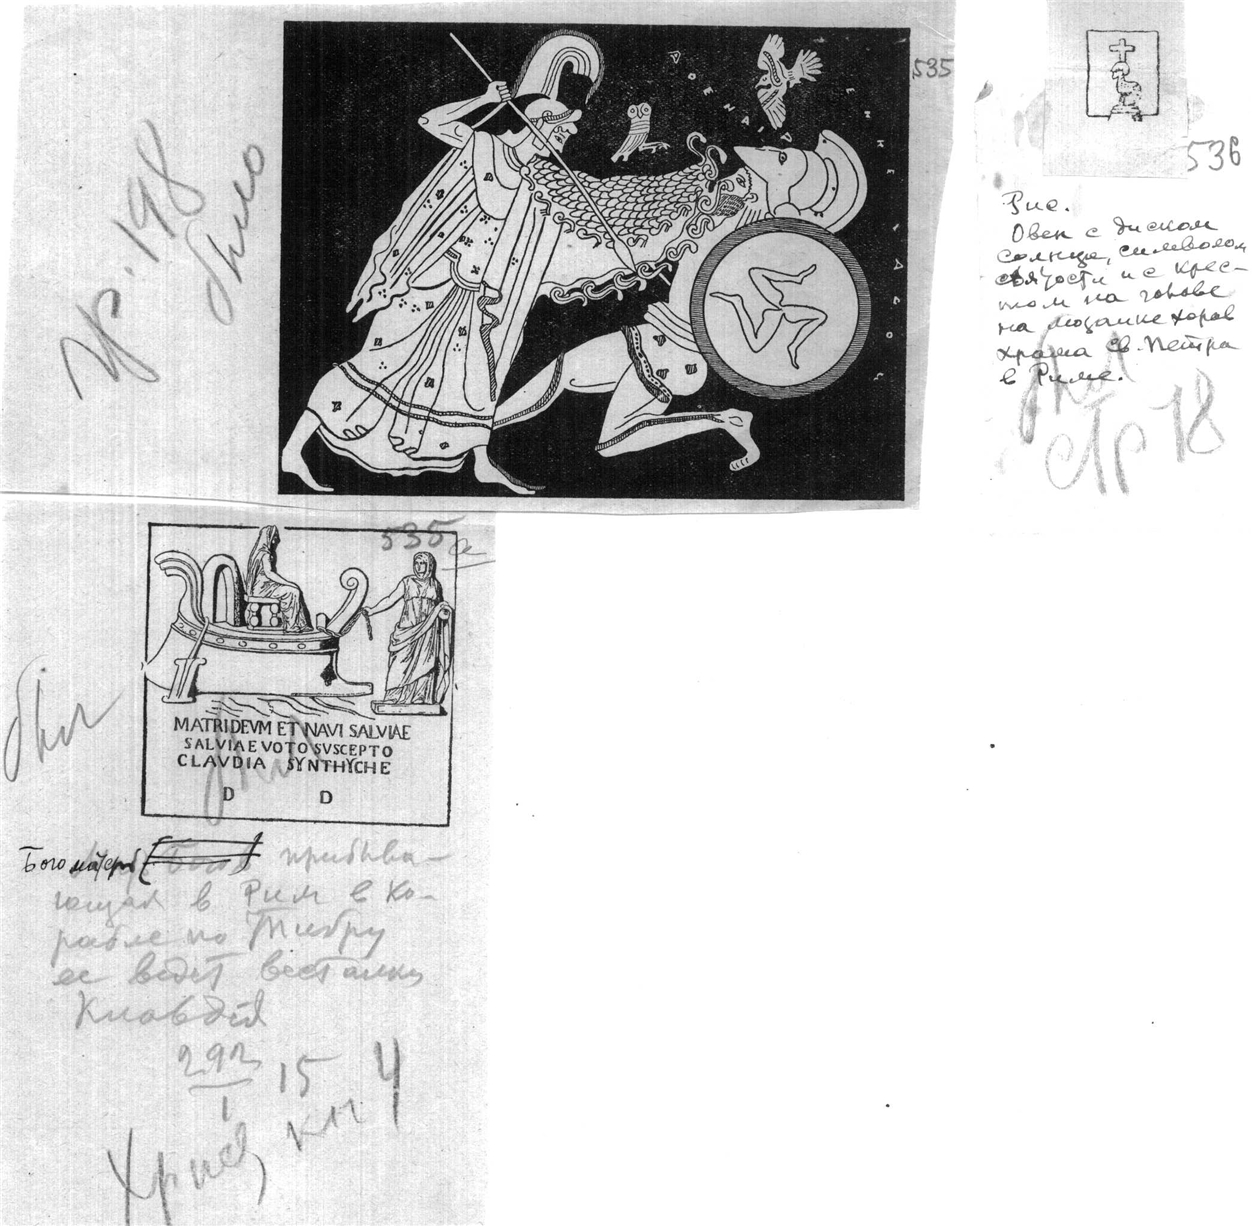 535
стр. 198
было
ΕΝΚΕΛΑΔΟΣ
536
Рис.
Овен с диском
солнца, символом
святости и с крес-
том на голове
на мозаике хоров
храма св. Петра
в Риме.
был
стр 78
535а
MATRI DEVM ET NAVI SALVIAE
SALVIAE VOTO SVSCEPTO
CLAVDIA SYNTHYCHE
D D
был
был
Богоматерь прибыва-
ющая в Рим в ко-
рабле по Тибру
ее ведет весталка
Клавдия
292
1
15
кн 4